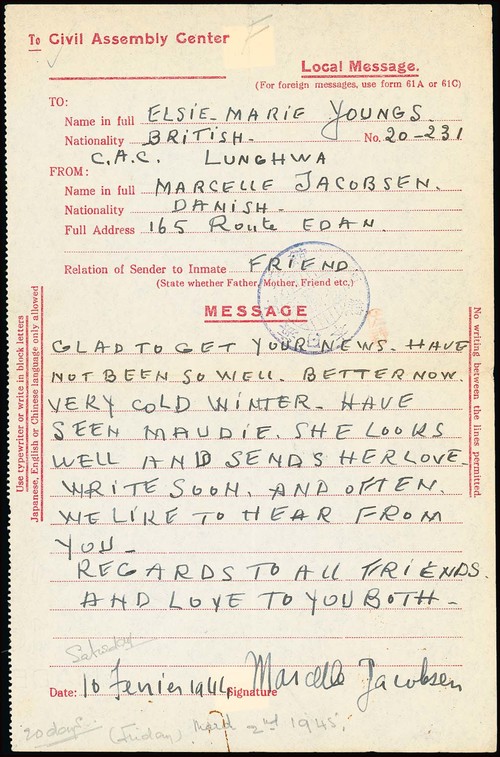 To Civil Assembly Center
Local Message.
(For foreign messages, use form 61A or 61C)
TO:
Name in full ELSIE-MARIE YOUNGS.
Nationality BRITISH- No. 20-231
C.A.C. LUNGHWA
FROM:
Name in full MARCELLE JACOBSEN.
Nationality DANISH-
Full Address 165 Route EDAN.
Relation of Sender to Inmate FRIEND
(State whether Father, Mother, Friend etc.)
MESSAGE
GLAD TO GET YOUR NEWS. HAVE
NOT BEEN SO WELL. BETTER NOW.
VERY COLD WINTER- HAVE
SEEN MAUDIE. SHE LOOKS
WELL AND SENDS HER LOVE.
WRITE SOON. AND OFTEN.
WE LIKE TO HEAR FROM
YOU-
REGARDS TO ALL FRIENDS.
AND LOVE TO YOU BOTH-
Use typewriter or write in block letters
Japanese, English or Chinese language only allowed
No writing between the lines permitted.
Saturday
Date: 10 Fevrier 1944 Signature Marcelle Jacobsen
20 days (Friday) March 2nd 1945.